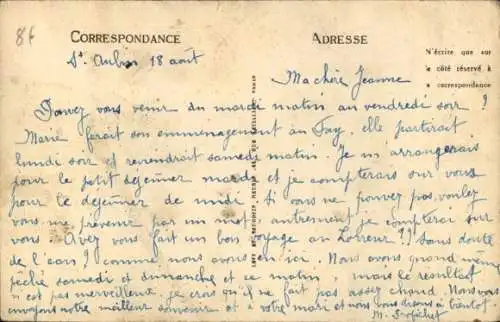 86
CORRESPONDANCE
ADRESSE
N'écrire que sur
le côté réservé à
la correspondance
St Aubin 18 août
Ma chère Jeanne
Pouvez vous venir du mardi matin au vendredi soir ?
Marie ferait son emménagement au Fay, elle partirait
lundi soir et reviendrait samedi matin. Je m'arrangerais
pour le petit déjeuner mardi et je compterais sur vous
pour le déjeuner de midi. Si vous ne pouvez pas, voulez
vous me prévenir par un mot autrement je compterai sur
vous. Avez vous fait un bon voyage au ?? Sans doute
de l'eau ? comme nous avons eu ici. Nous avons quand même
pêché samedi et dimanche et ce matin mais le résultat
n'est pas merveilleux. je crois qu'il ne fait pas assez chaud. Nous vous
envoyons notre meilleur souvenir et à votre mari et nous vous disons à bientôt
M.